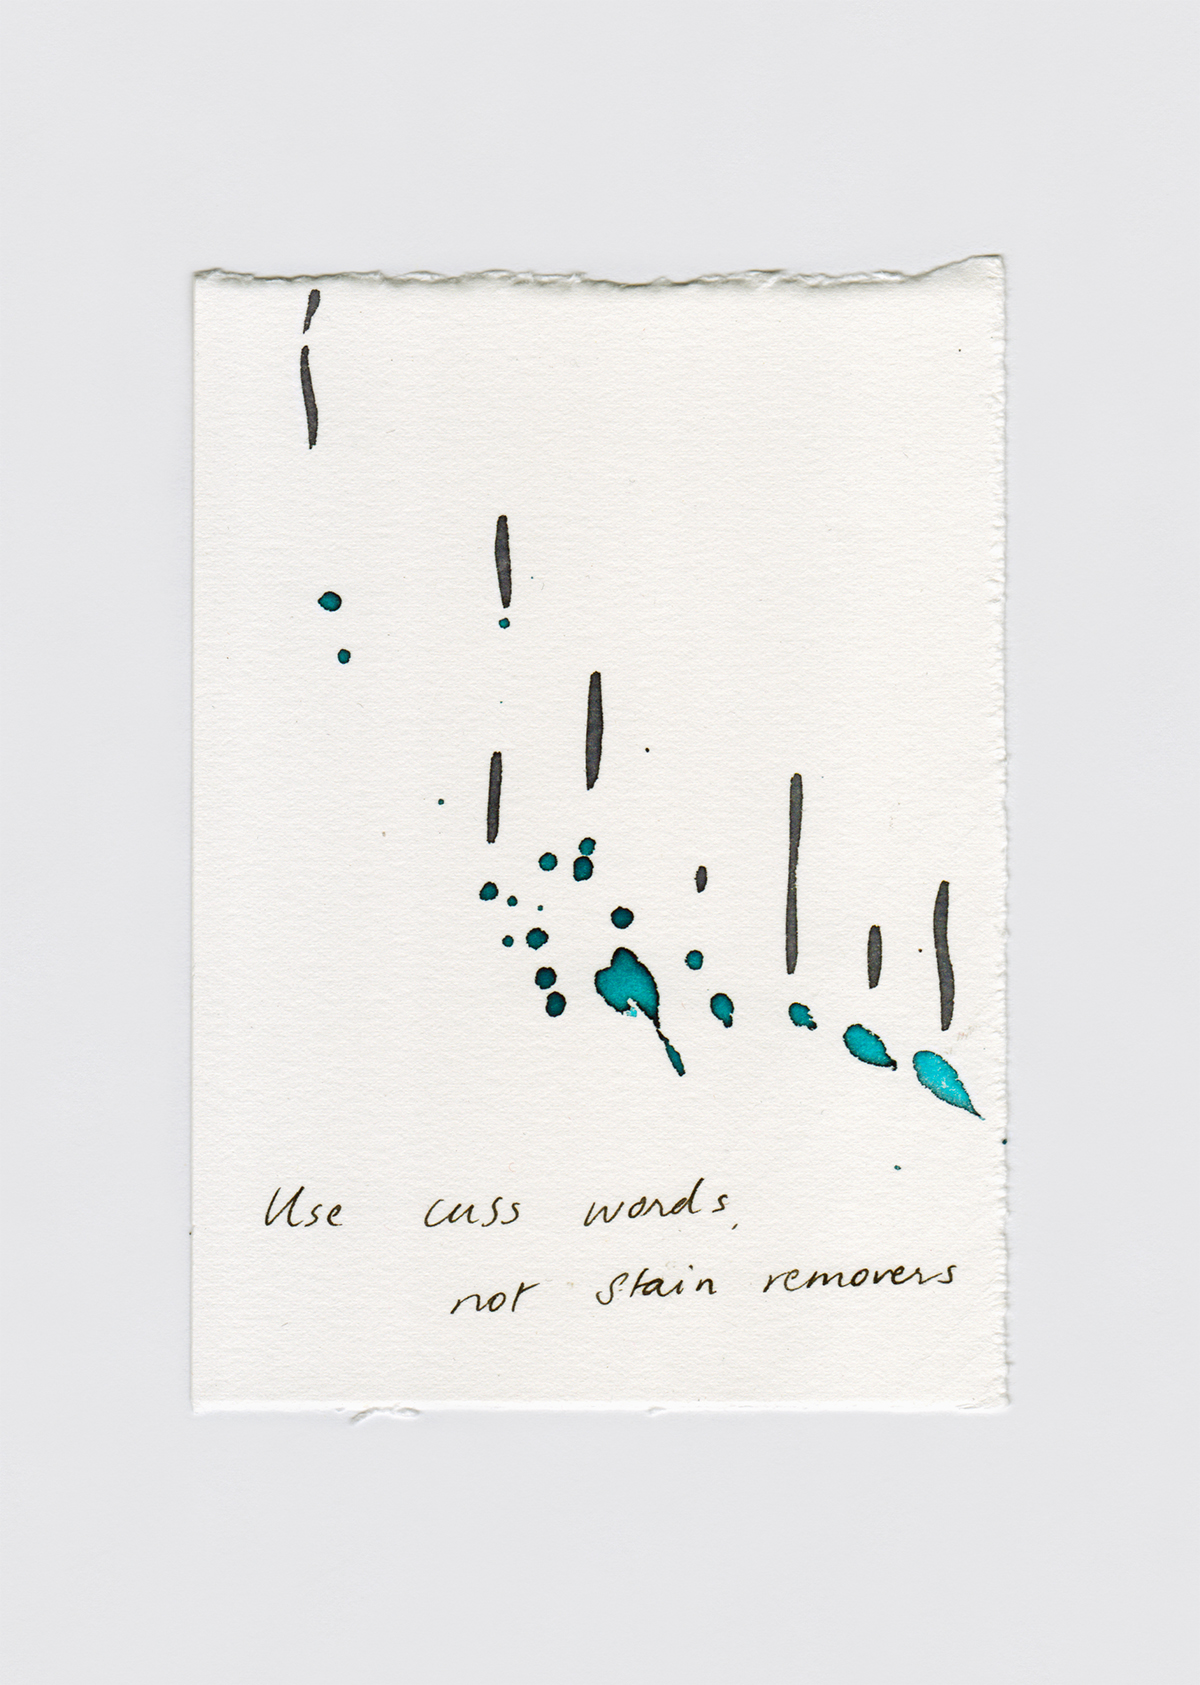 Use cuss words,
not stain removers